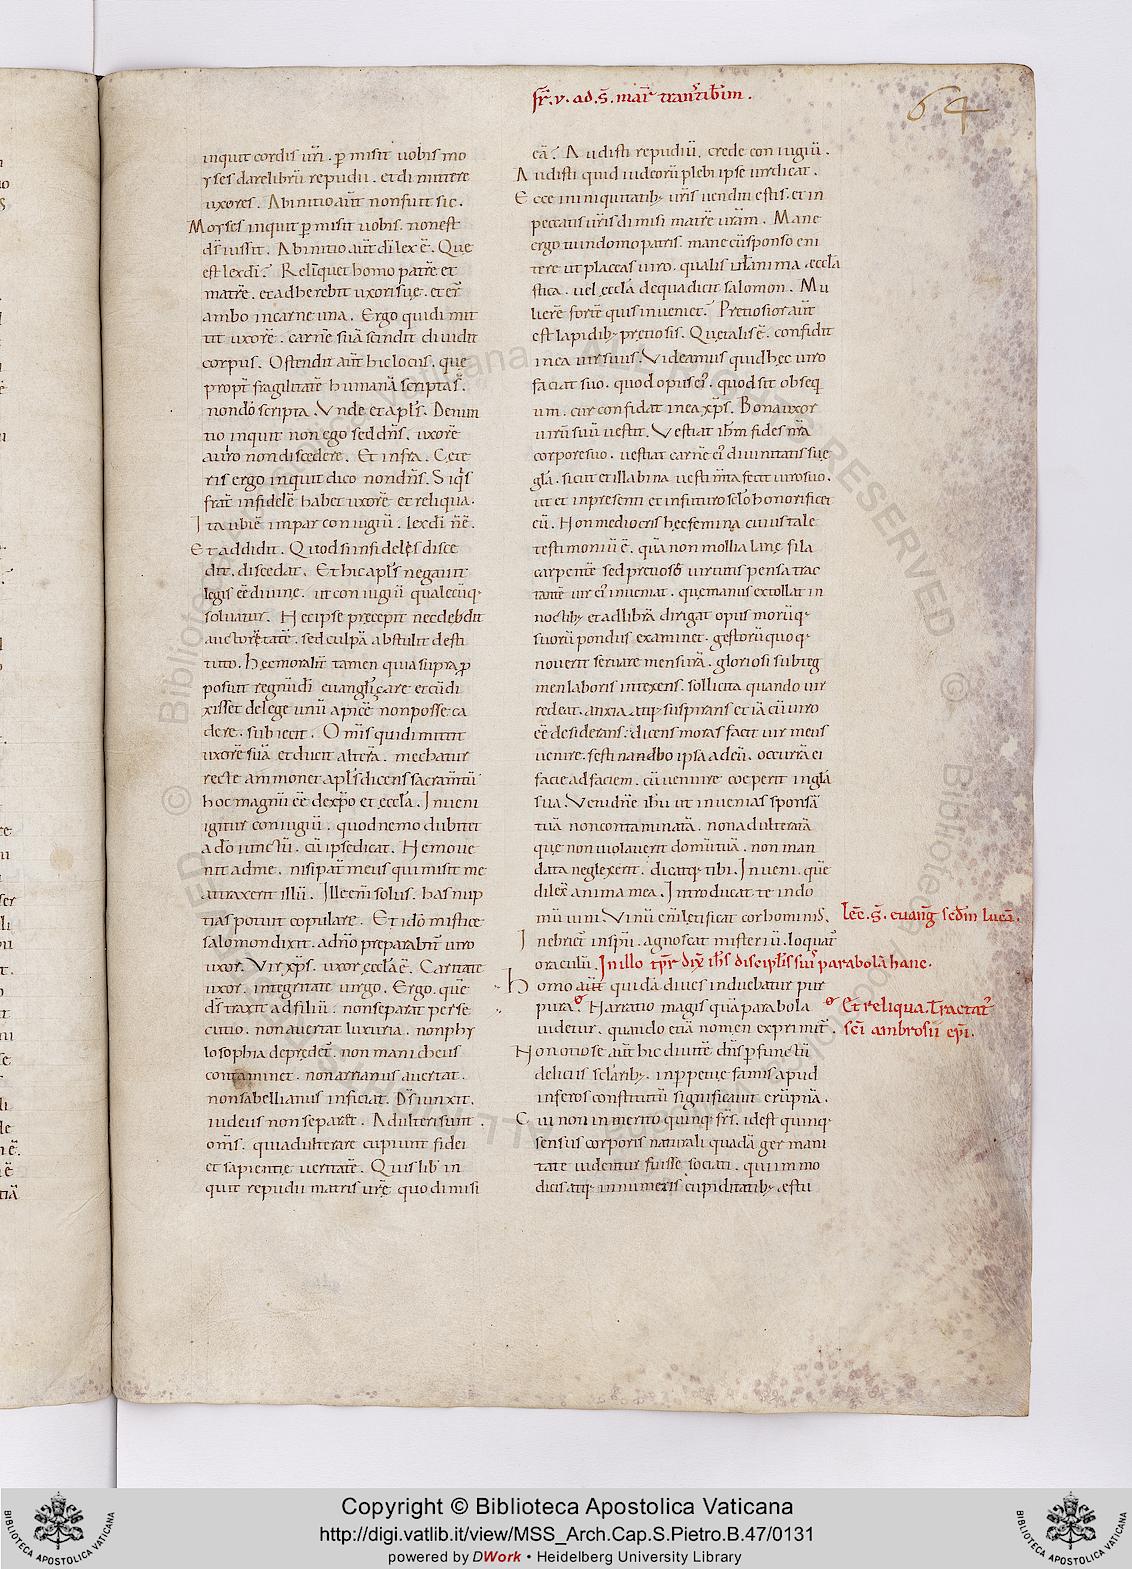 fr̄. v. ad. s̄. mar̄ tranˢtib̄im.
64
inquit cordis ur̄i. p̄ misit uobis mo
yses dare librū repudii. et dimittere
uxores. Ab initio aūt non fuit sic.
Moyses inquit p̄misit uobis. non est
dn̄s iussit. Ab initio aūt dī lex ē. Que
est lex dī? Relinquet homo patrē et
matrē. et adherebit uxori suę. et er̄
ambo in carne una. Ergo qui dimit
tit uxorē. carnē suā scindit diuidit
corpus. Ostendit aūt hic locus. quę
propt̄ fragilitatē humanā scripta s̄.
non dō scripta. Vnde et apl̄s. Denun
tio inquit non ego sed dn̄s. uxorē
a uiro non discedere. Et infra. Cete
ris ergo inquit dico non dn̄s. Siq̄s
frat̄ infidelē habet uxorē et reliqua.
Ita ubi ē impar coniugiū. lex dī n̄ ē.
Et addidit. Quod si infideles disce
dit. discedat. Et hic apl̄s negauit
legis eē diuinę. ut coniugiū qualecūq;
soluatur. Nec ipse pręcepit nec dedit
auctoritatē. sed culpā abstulit desti
tuto. Hec moralit̄ tamen quia supra p̄
posuit regnū dī euangl̄izare et cū di
xisset de lege unū apicē non posse ca
dere. subiecit. Om̄is qui dimittit
uxorē suā et ducit alterā. mechatur
recte ammonet apl̄s dicens sacram̄tū
hoc magnū eē de xp̄o et eccl̄a. Inueni
igitur coniugiū. quod nemo dubitet
a dō iunctū. cū ipse dicat. Nemo ue
nit ad me. nisi pat̄ meus qui misit me
attraxerit illū. Ille eni solus. has nup
tias potuit copulare. Et idō mistice
salomon dixit. a dn̄o preparabit̄ uiro
uxor. Vir xp̄s. uxor eccl̄a ē. Caritate
uxor. integritate uirgo. Ergo. quę
dn̄s traxit ad filiū. non separat perse
cutio. non auertat luxuria. non phy
losophia depredet̄. non manicheus
contaminet. non arrianus auertat.
non sabellianus inficiat. Dn̄s iunxit.
iudeus non separet. Adulteri sunt.
om̄s. qui adulterare cupiunt fidei
et sapientię ueritatē. Quis lib̄ in
quit repudii matris ur̄ę quo dimisi
eā? Audisti repudiū. crede coniugiū.
Audisti quid iudeorū plebi ipse indicat.
Ecce in iniquitatib; ur̄is uenditi estis. et in
peccatis ur̄is dimisi matrē ur̄am. Mane
ergo tu in domo patris. mane cū sponso eni
tere ut placeas uiro. qualis ul̄ anima eccl̄a
stica. uel eccl̄a de qua dicit salomon. Mu
lierē fortē quis inueniet? Pretiosior aūt
est lapidib; pretiosis. Que talis ē. confidit
in ea uir suus. Videamus quid hęc uiro
faciat suo. quod opus ei. quod sit obseq̄
um. cur confidat in ea xp̄s. Bona uxor
uirū suū uestit. Vestiat ih̄m fides nr̄a
corpore suo. uestiat carnē ei diuinitatis suę
gl̄a. sicut et illa bina uestim̄ta fecit uiro suo.
ut et in presenti et in futuro scl̄o honorificet
eū. Non mediocris hęc femina cuius tale
testimoniū ē. quā non mollia lanę fila
carpentē sed pretiosę uirtutis pensa trac
tantē uir ei inueniat. quę manus extollat in
noctib; et ad librā dirigat opus morūq;
suorū pondus examinet. gestorū quoq;
nouerit seruare mensurā. gloriosi subteg
men laboris intexens. sollicita quando uir
redeat. anxia atq; suspirans et iā cū uiro
eē desiderans. dicens moras facit uir meus
uenire. festinandoo ipsa ad eū. occurrā ei
facie ad faciem. cū uenire coeperit in gl̄a
sua. Veni dn̄e ih̄u ut inuenias sponsā
tuā non contaminatā. non adulteratā
quę non uiolauerit domū tuā. non man
data neglexerit. dicatq; tibi. Inueni. quē
dilex̄ anima mea. Introducat te in do
mū uini. Vinū eni lętificat cor hominis.
Inebriet̄ in spū. agnoscat misteriū. loquat̄
oraculū. In illo tp̄r dix̄ ih̄s discipl̄is suis parabolā hanc.
Homo aūt quidā diues induebatur pur
pura. Narratio magis quā parabola
uidetur. quando etiā nomen exprimit̄.
Non otiose aūt hic diuitē dn̄s p̄functū
deliciis sclarib;. in p̄petuę famis apud
inferos constitutū significauit erūpna.
Cui non inmerito quinq; fr̄s. id est quinq;
sensus corporis naturali quadā germani
tate uidentur fuisse sociati. qui immo
dicis atq; innumeris cupiditatib; ęstu
Lec̄. s̄. euanḡ secd̄m lucā.
Et reliqua. Tractat̄
sc̄i ambrosii ep̄i.
Copyright © Biblioteca Apostolica Vaticana
http://digi.vatlib.it/view/MSS_Arch.Cap.S.Pietro.B.47/0131
powered by DWork • Heidelberg University Library